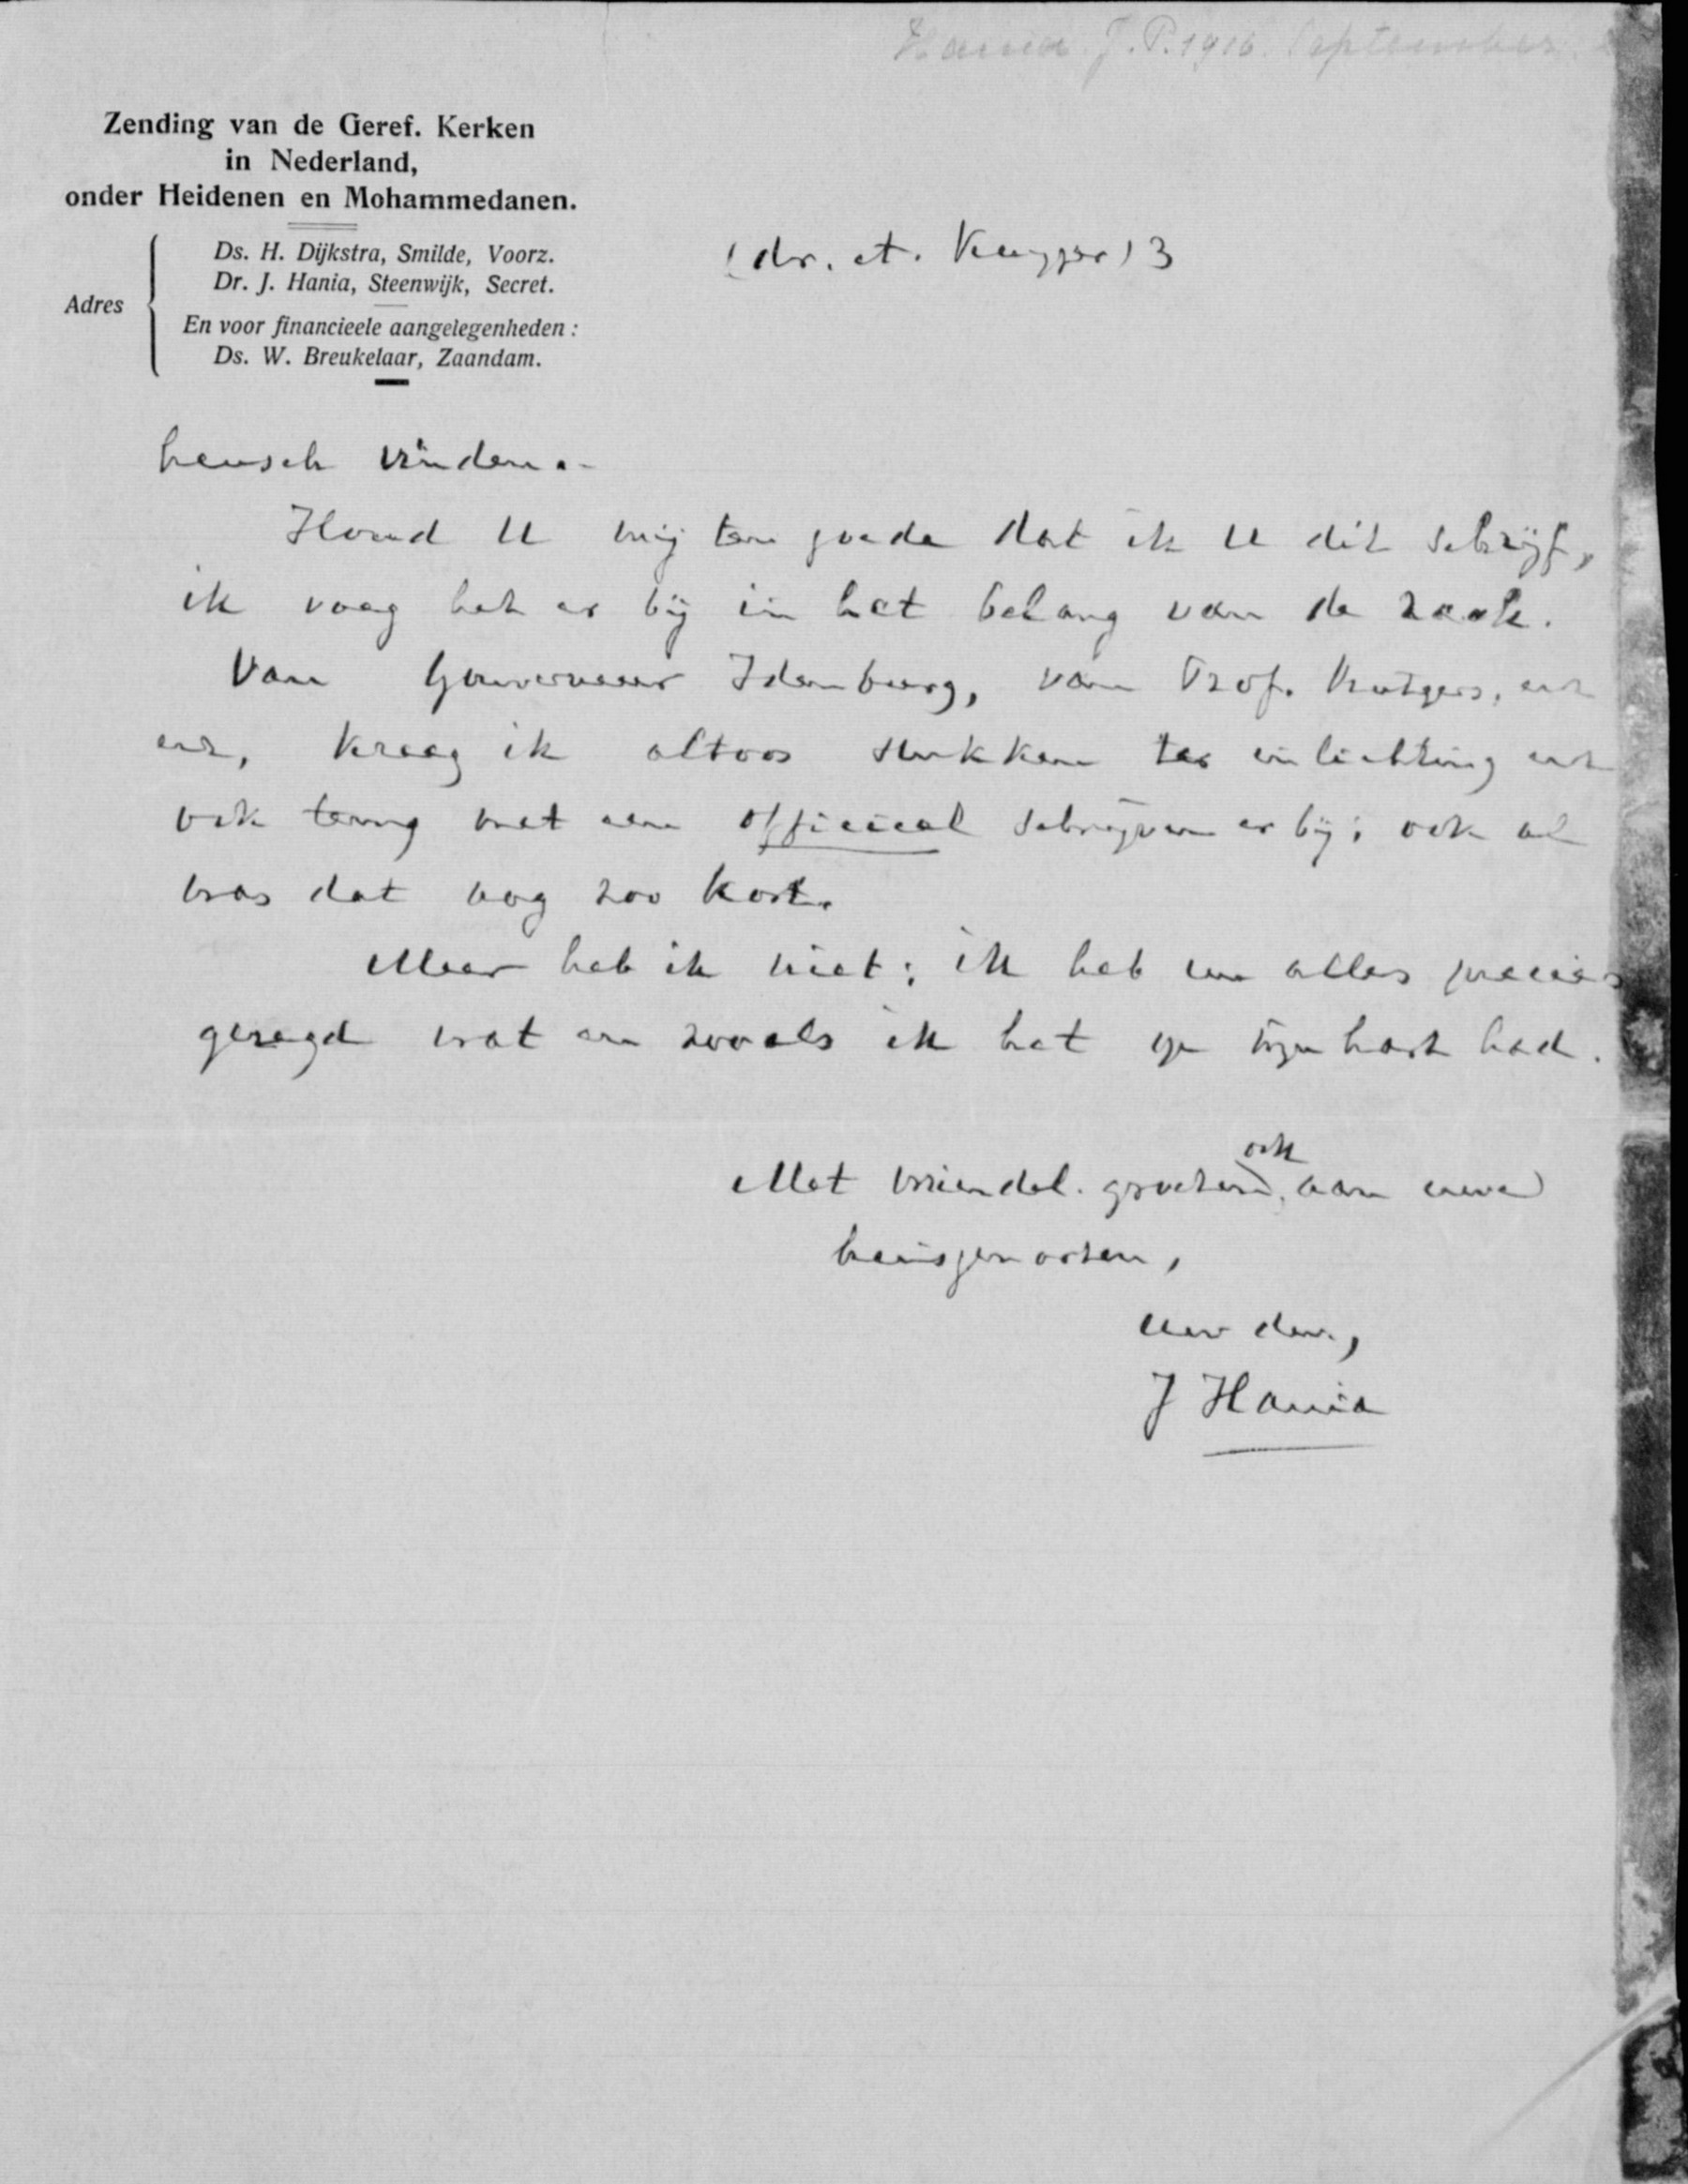 Hania J. P. 1916. September
Zending van de Geref. Kerken
in Nederland,
onder Heidenen en Mohammedanen.
Adres
Ds. H. Dijkstra, Smilde, Voorz.
Dr. J. Hania, Steenwijk, Secret.
En voor financieele aangelegenheden:
Ds. W. Breukelaar, Zaandam.
(dr. A. Kuyper) 3
heusch vinden.-
Houd U mij ten goede dat ik U dit schrijf,
ik voeg het er bij in het belang van de zaak.
Van Gouverneur Idenburg, van Prof. Rutgers, enz
enz, kreeg ik altoos stukken ter inlichting enz
ook terug met een officieel schrijven er bij; ook al
was dat nog zoo kort.
Meer heb ik niet; ik heb nu alles precies
gezegd wat en zooals ik het op mijn hart had.
Met vriendel. groeten, ook aan uwe
huisgenooten,
Uw dw.,
J Hania